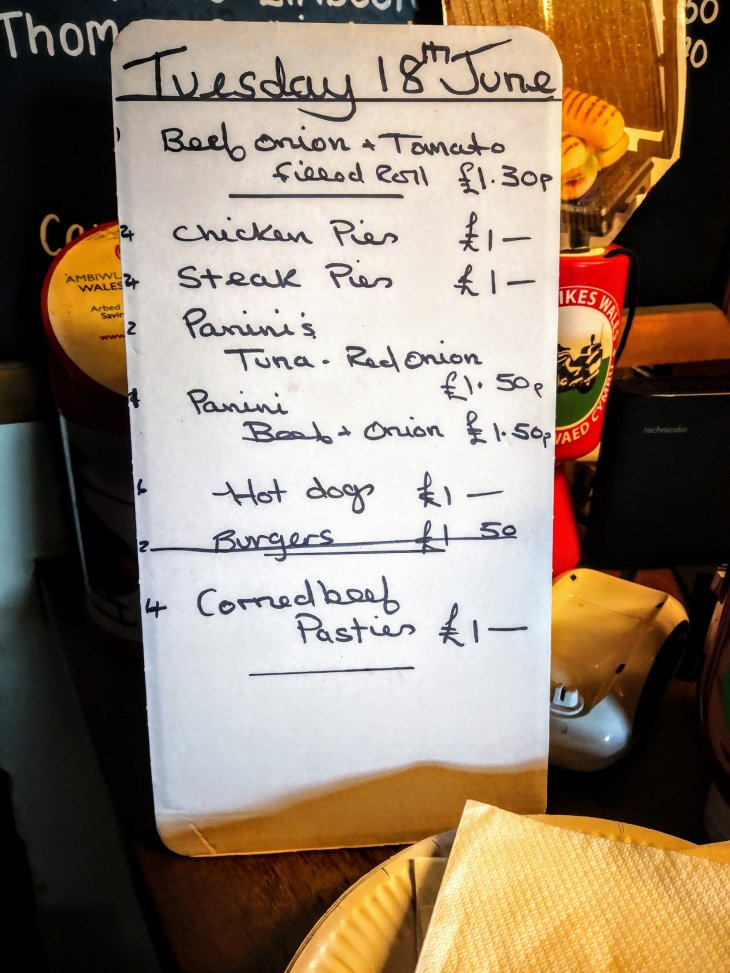 Thom
Tuesday 18th June
Beef onion + Tomato
filled Roll £1.30p
4 Chicken Pies £1—
4 Steak Pies £1—
2 Panini's
Tuna - Red Onion
£1.50p
Panini
Beef + Onion £1.50p
6 Hot dogs £1—
2 Burgers £1 50
4 Corned beef
Pasties £1—
WALES
Arbed
www.
IKES WALE
technicolor